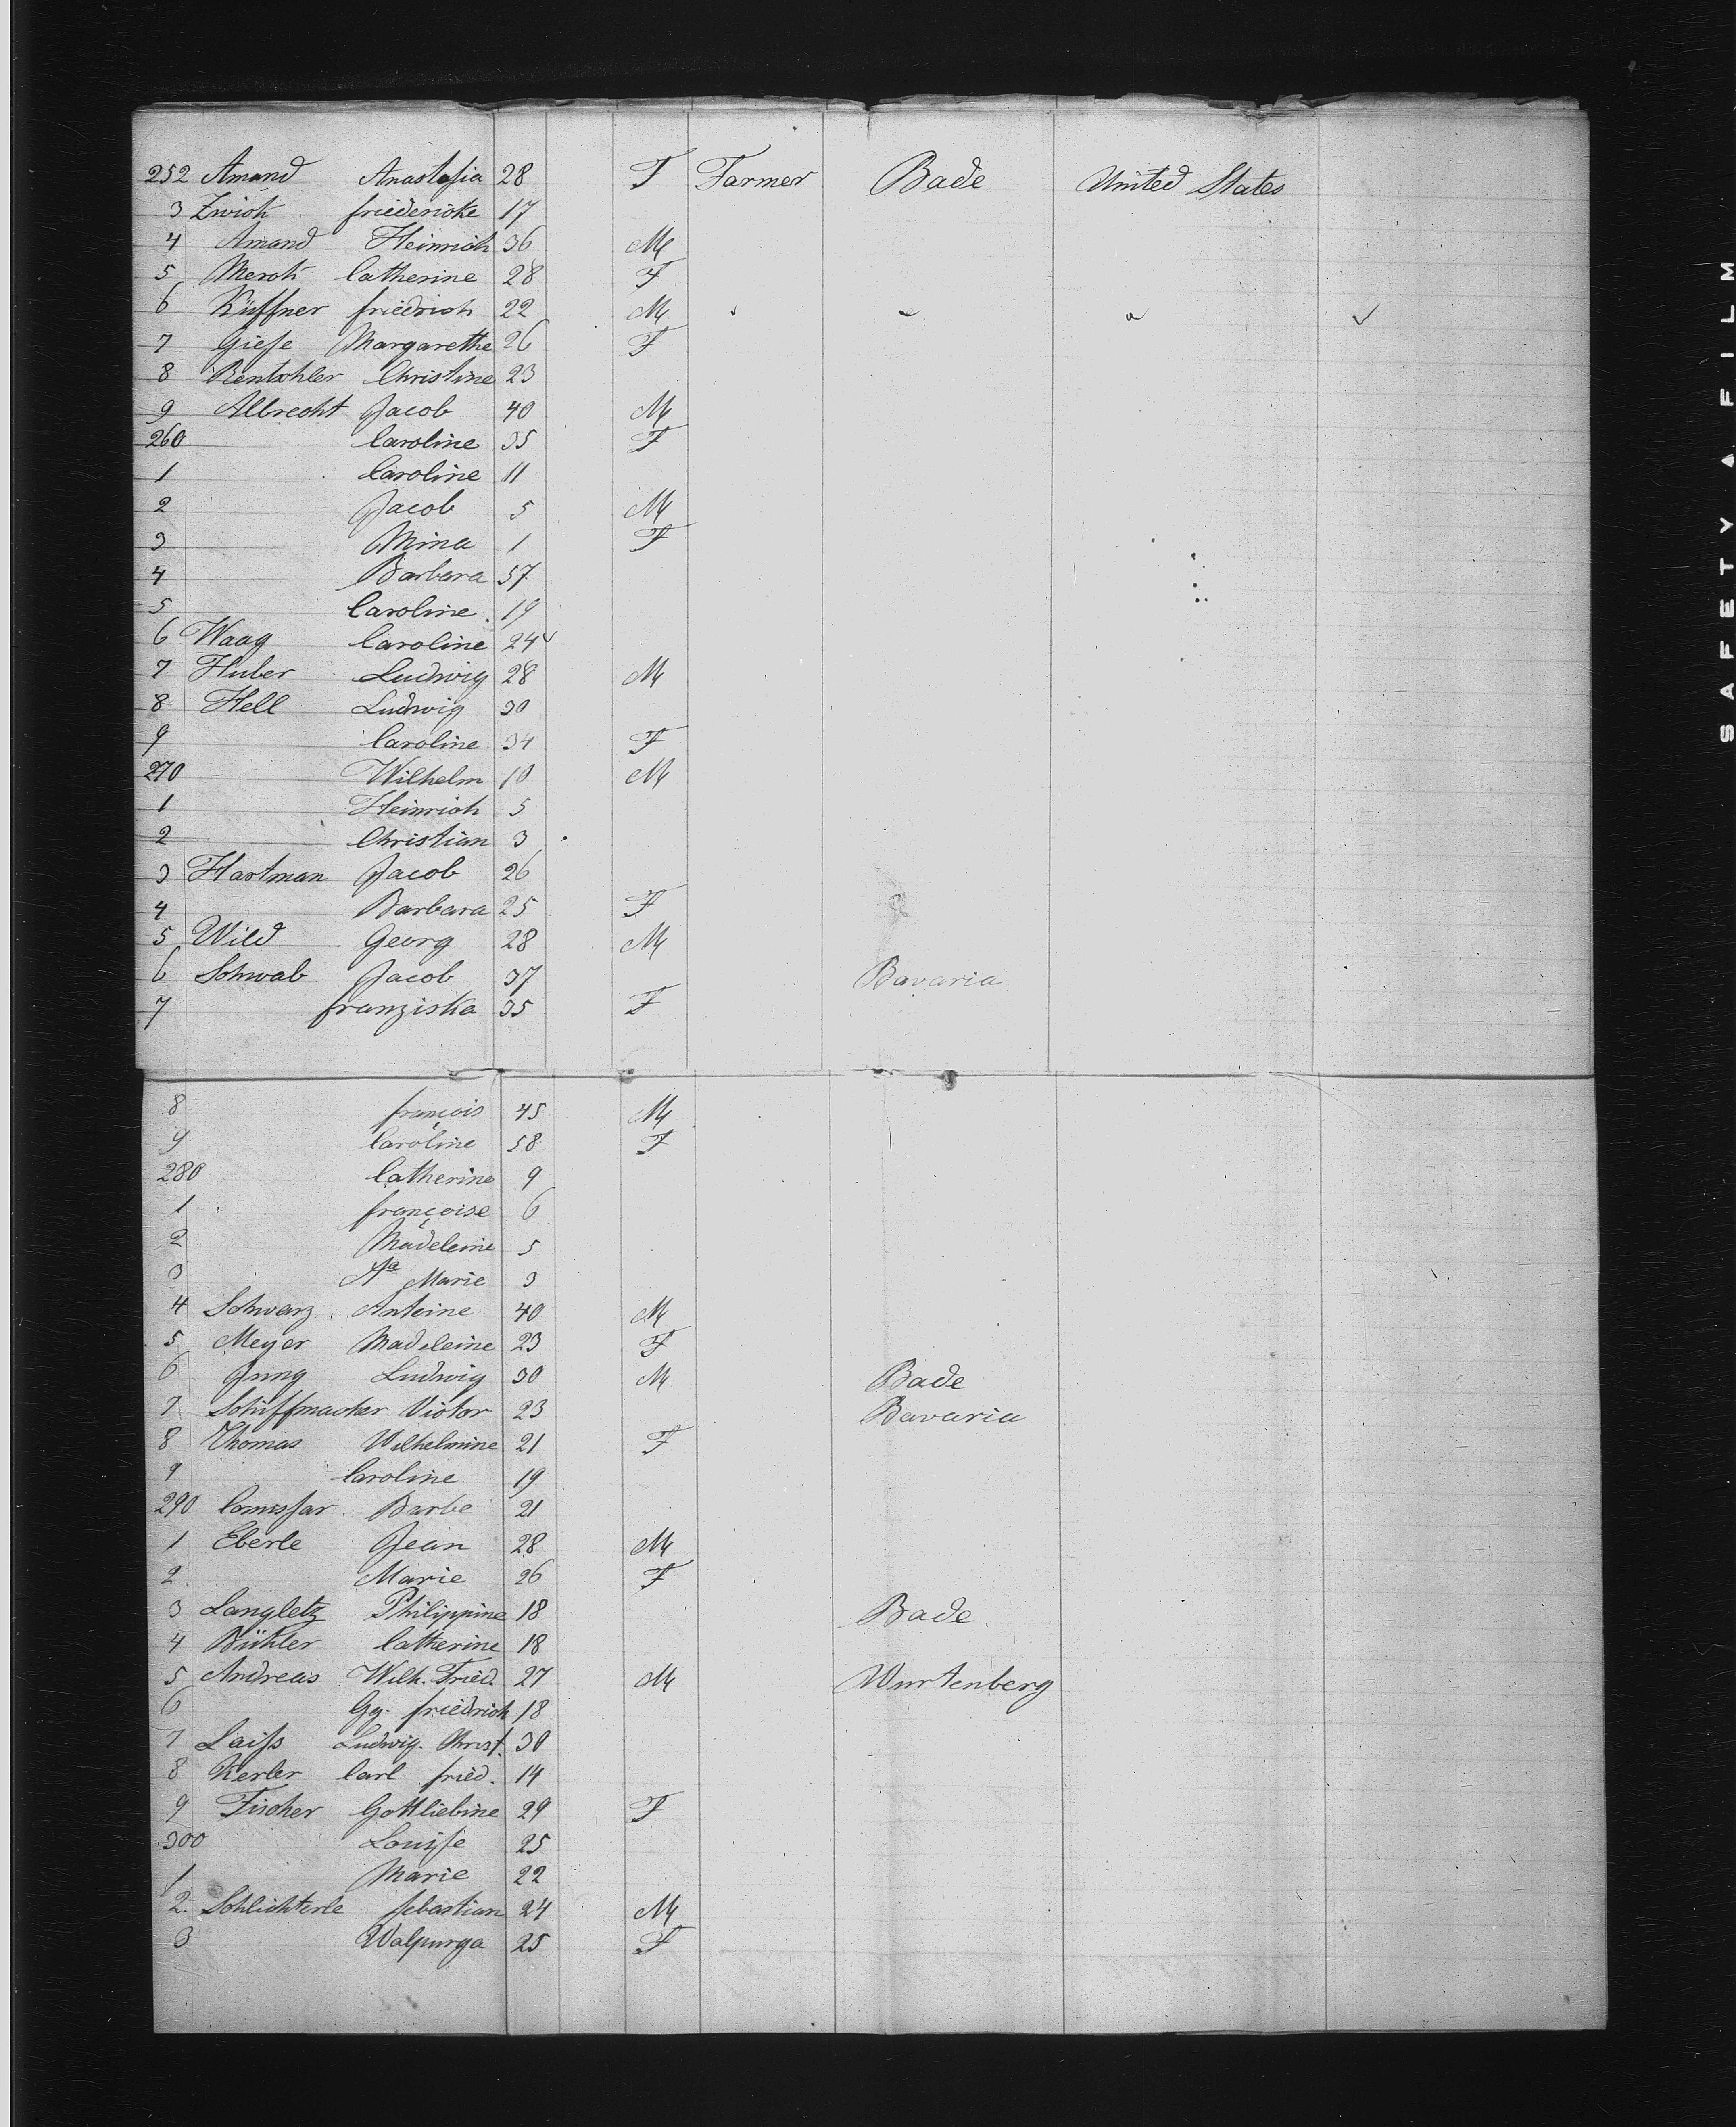 252 Amand Anastasia 28 F Farmer Bade United States
3 Zwick friedericke 17
4 Amand Heinrich 36 M
5 Merck Catherine 28 F
6 Küffner friedrich 22 M
7 Giese Margarethe 26 F
8 Bentchler Christine 23
9 Albrecht Jacob 40 M
260 Caroline 35 F
1 Caroline 11
2 Jacob 5 M
3 Mina 1 F
4 Barbara 57
5 Caroline 19
6 Waag Caroline 24
7 Huber Ludwig 28 M
8 Hell Ludwig 30
9 Caroline 34 F
270 Wilhelm 10 M
1 Heinrich 5
2 Christian 3
3 Hartman Jacob 26
4 Barbara 25 F
5 Wild Georg 28 M
6 Schwab Jacob 37 Bavaria
7 franziska 35 F
8 françois 45 M
9 Caroline 58 F
280 Catherine 9
1 françoise 6
2 Madeleine 5
3 Aa Marie 3
4 Schwarz Antoine 40 M
5 Meyer Madeleine 23 F
6 Jung Ludwig 30 M Bade
7 Schiffmacher Victor 23 Bavaria
8 Thomas Wilhelmine 21 F
9 Caroline 19
290 Comissar Barbe 21
1 Eberle Jean 28 M
2 Marie 26 F
3 Langletz Philippine 18 Bade
4 Bühler Catherine 18
5 Andreas Wilh. Fried. 27 M Wurtenberg
6 Gg. friedrich 18
7 Laiss Ludwig. Christ. 30
8 Kerler Carl fried. 14
9 Fischer Gottliebine 29 F
300 Louise 25
1 Marie 22
2. Schlichterle sebastian 24 M
3 Walpurga 25 F
SAFETY A FILM